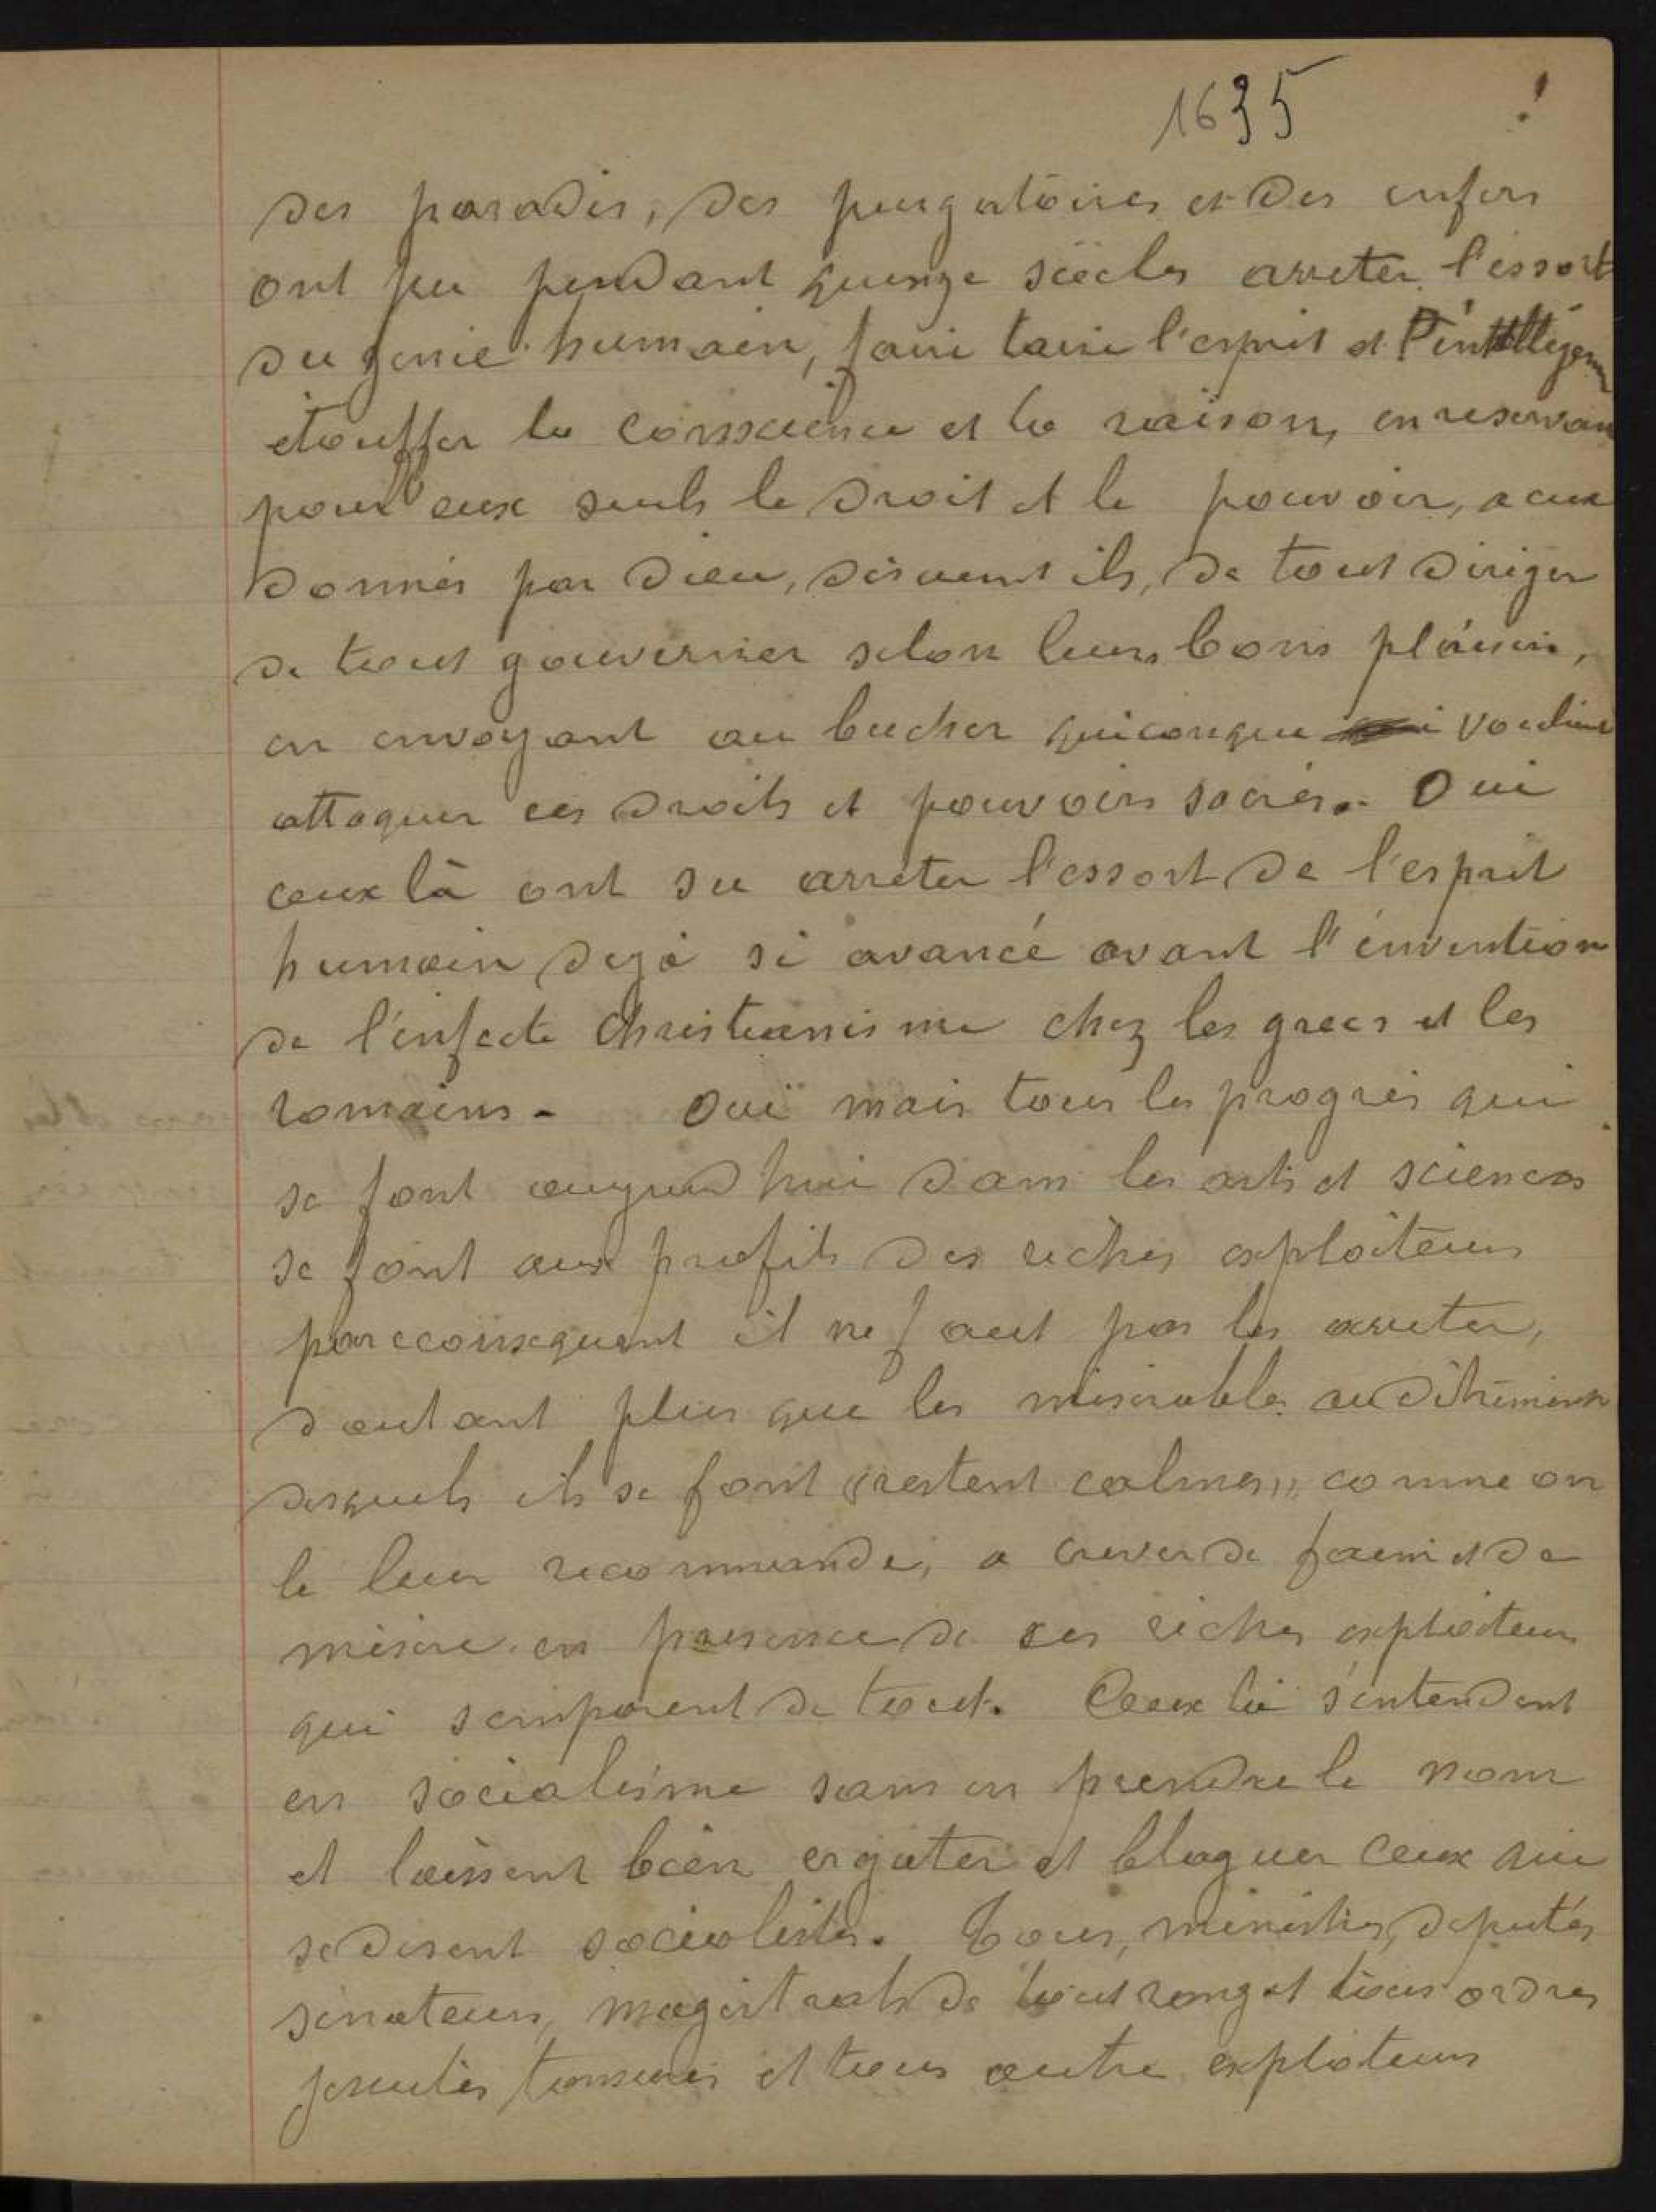 1635 !
des paradis, des purgatoires et des enfers
ont pu pendant quinze siècles arreter l'essort
du genie humain, faire taire l'esprit et l'intelligence
étouffer la conscience et la raison, en reservan
pour eux seuls le droit et le pouvoir, a eux
donnés par dieu, disaient ils, de tout diriger
de tout gouverner selon leurs bons plaisirs,
en envoyant au bucher quiconque voudrait
attaquer ces droits et pouvoirs sacrés. Oui
ceux là ont su arrêter l'essort de l'esprit
humain dejà si avancé avant l'invention
de l'infecte Christianisme chez les grecs et les
romains - Oui mais tous les progrès qui
se font aujourd hui dans les arts et sciences
se font aux profits des riches exploiteurs
par econsequent il ne faut pas les arreter,
dautant plus que les miserables au détriment
desquels ils se font "restent calmes", comme on
le leur recommande, a crever de faim et de
misère en presence de ces riches exploiteurs
qui semparent de tout. Ceux là s'entendent
en socialisme sans en prendre le nom
et laissent bien ergoter et blaguer ceux qui
se disent socialistes. Tous, ministres, deputés,
senateurs, magistrats de tout rang et tous ordres
jesuites, tonsurés et tous autre exploteurs